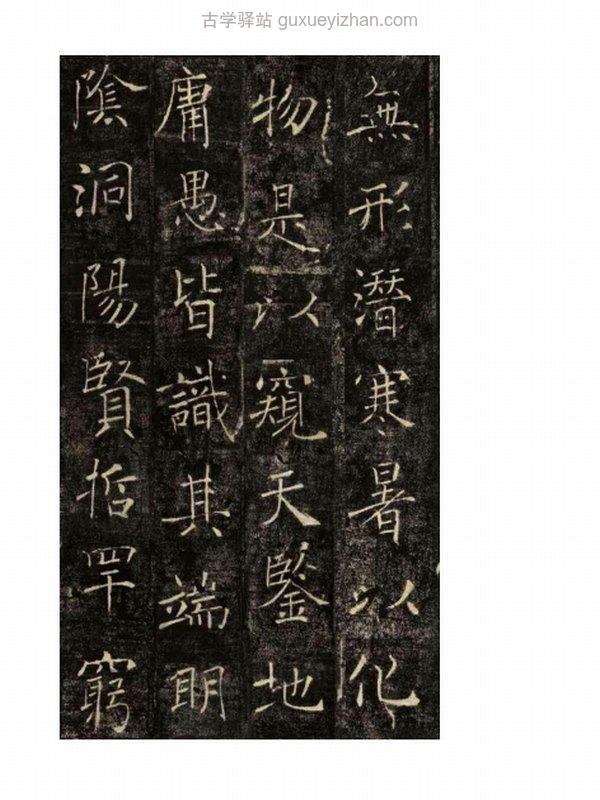 古学驿站 guxueyizhan.com
無形潛寒暑以化
物是以窺天鑒地
庸愚皆識其端明
陰洞陽賢哲罕窮